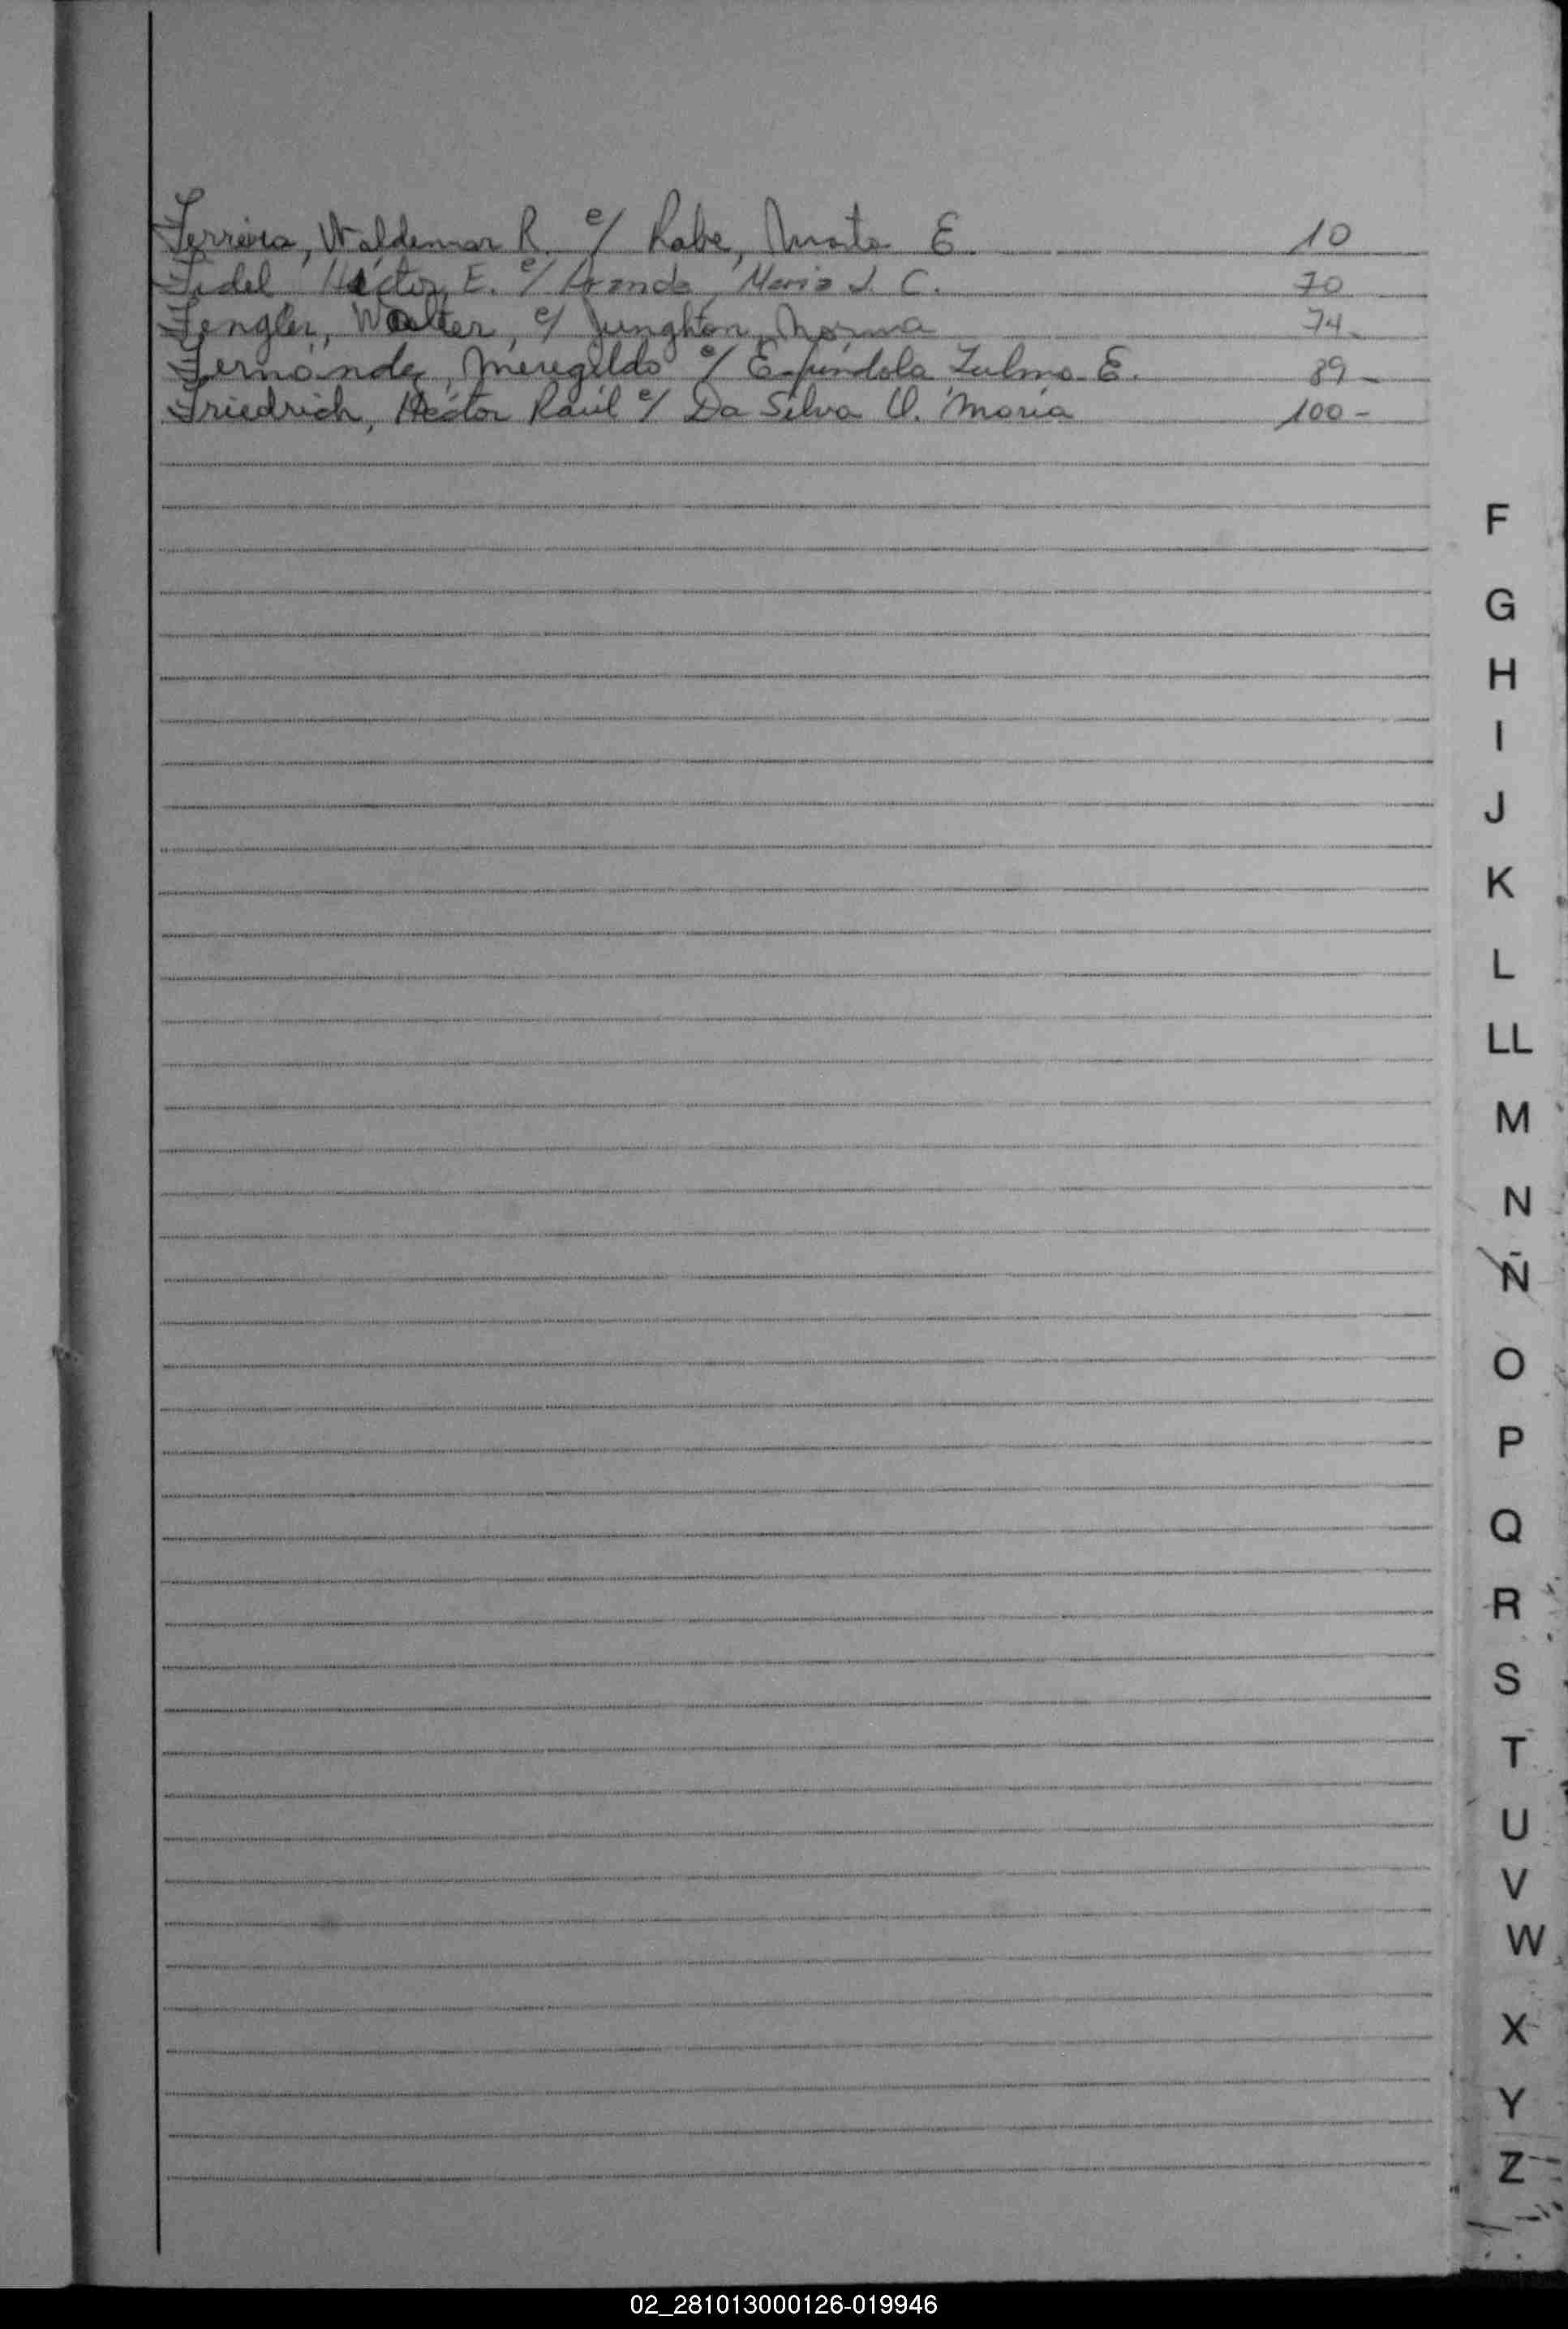 Ferreira, Waldemar R. c/ Rabe, Marta E. 10
Fidel Héctor E. c/ Aranda, Maria J. C. 70
Fengler, Walter, c/ Junghton, Norma 74
Fernández, Meregildo c/ Espíndola Zulma E. 89
Friedrich, Héctor Raúl c/ Da Silva O. Maria 100
F
G
H
I
J
K
L
LL
M
N
Ñ
O
P
Q
R
S
T
U
V
W
X
Y
Z
02_281013000126-019946